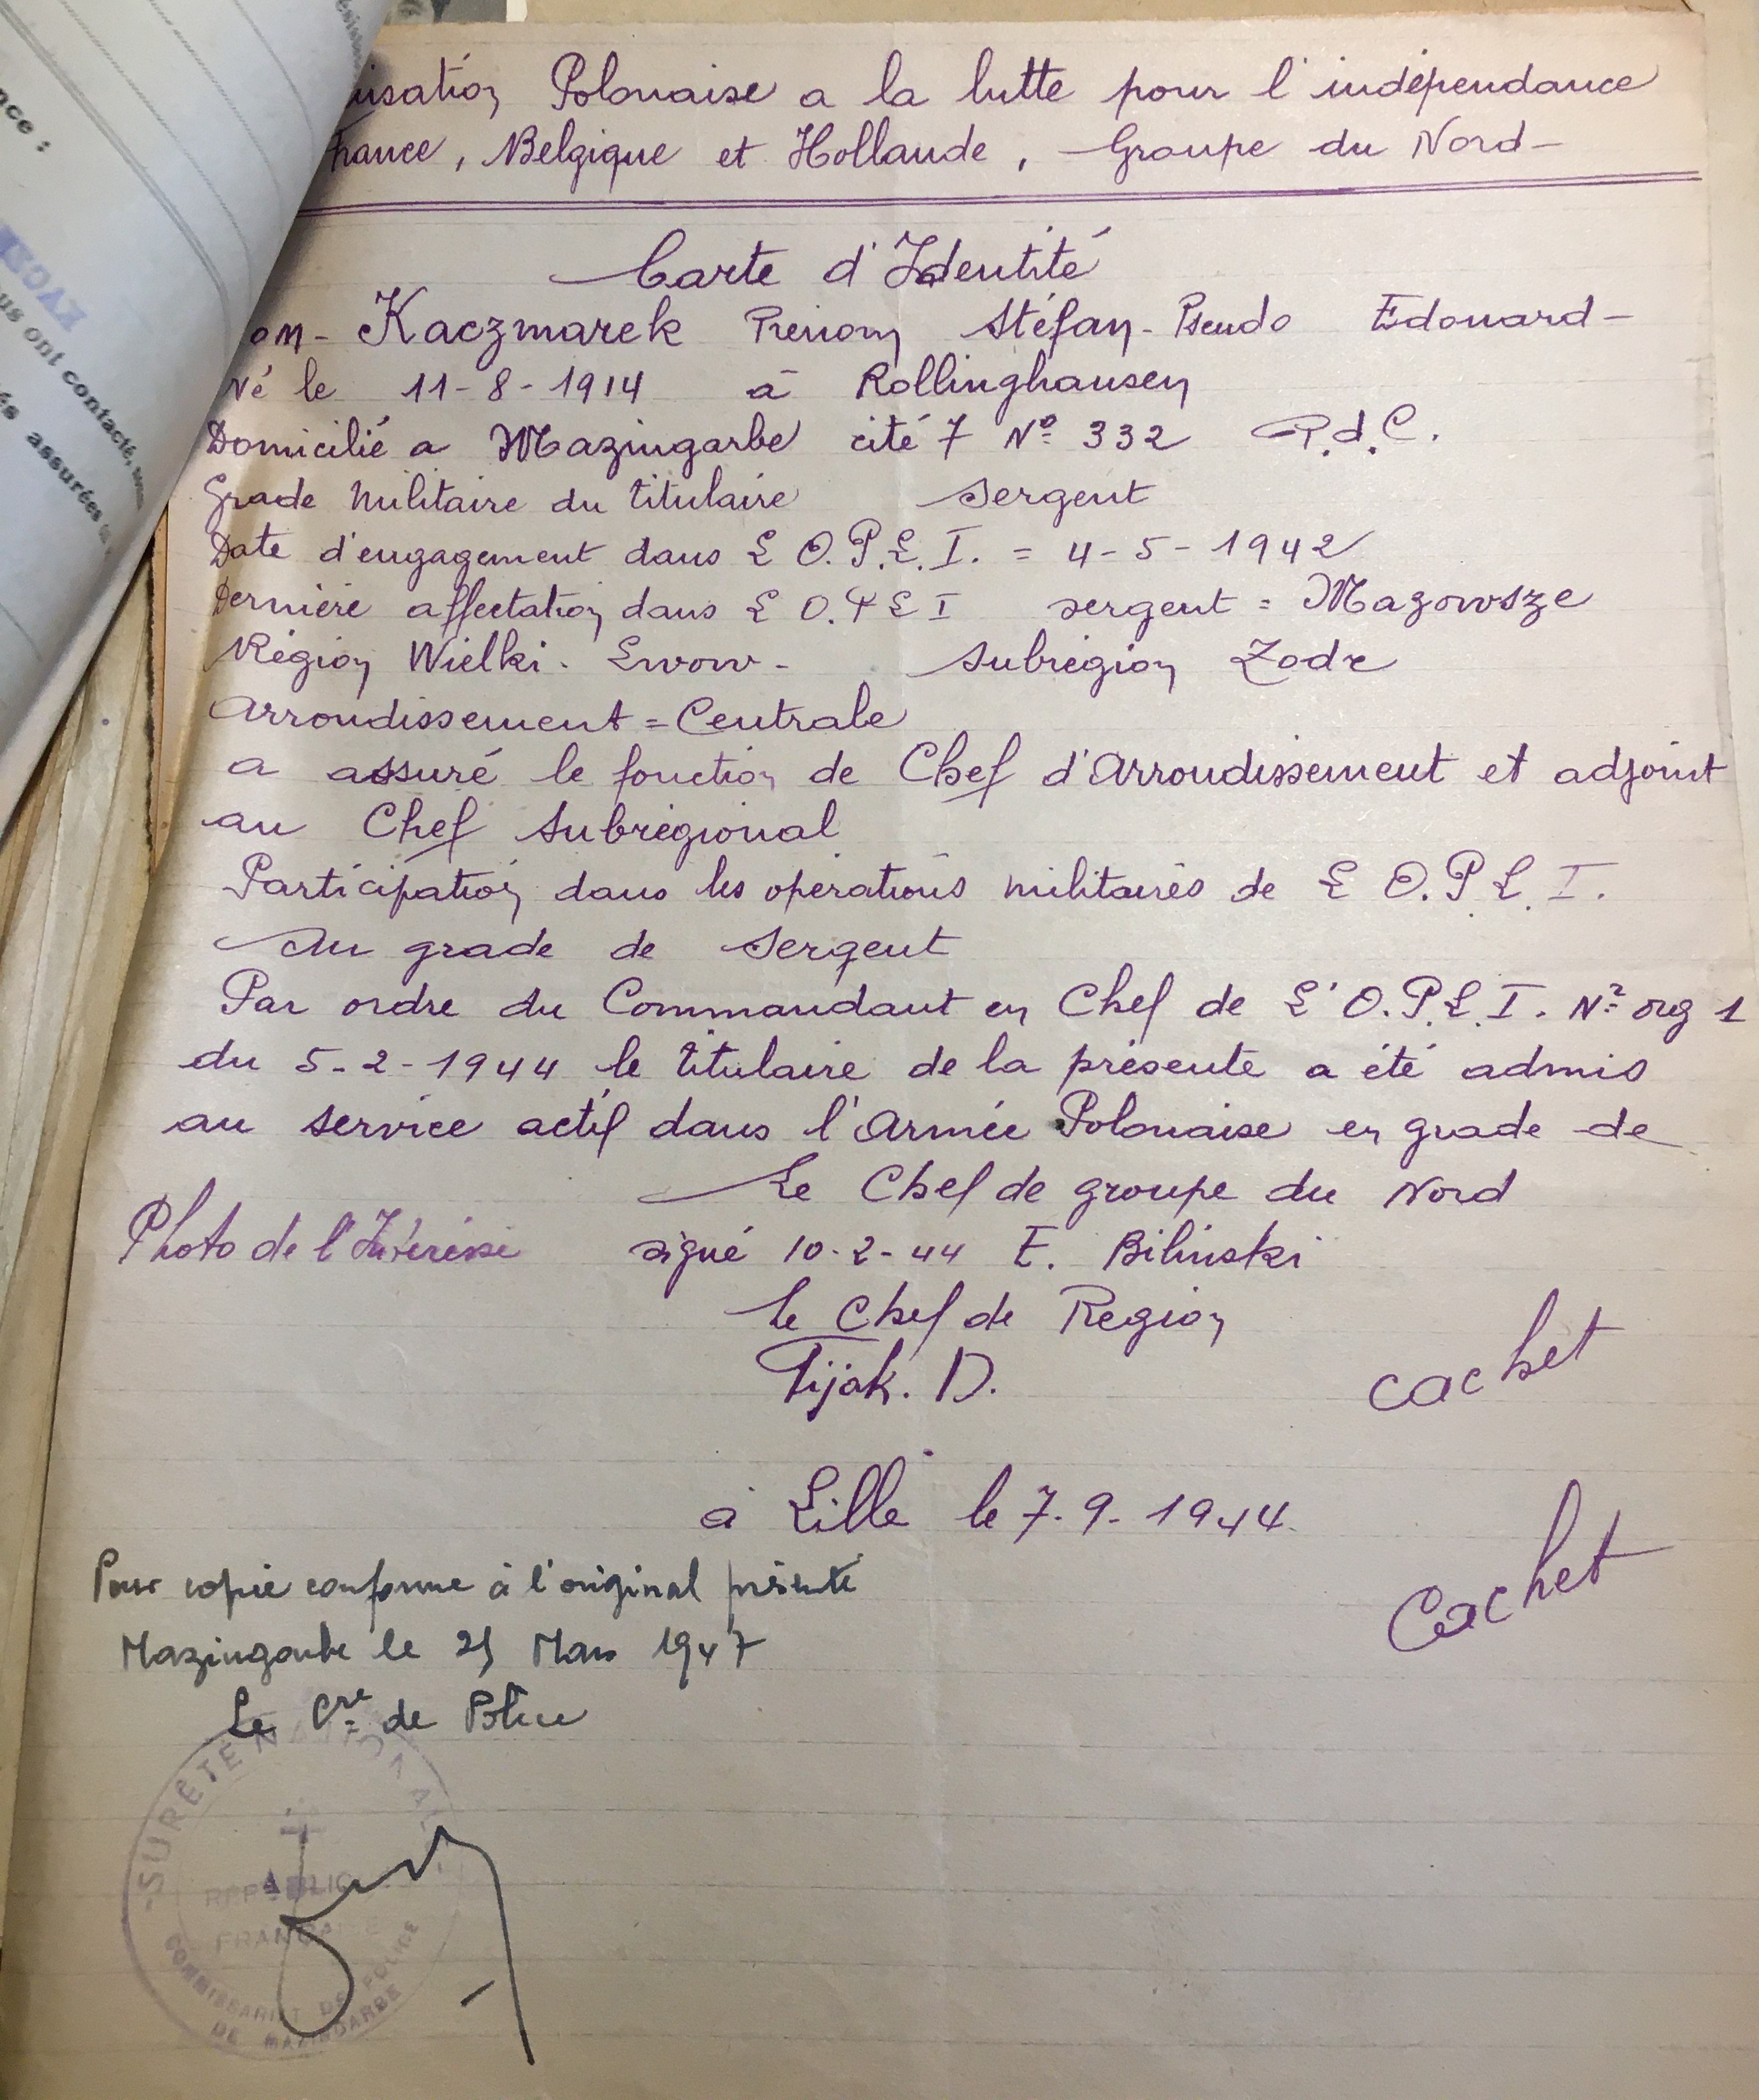 isation Polonaise a la lutte pour l'indépendance
France, Belgique et Hollande, Groupe du Nord -
Carte d'Identité
om - Kaczmarek Prenom Stéfan - Pseudo Edouard -
Né le 11-8-1914 à Rollinghausen
Domicilié a Mazingarbe cité 7 Nº 332 P.d.C.
Grade Militaire du titulaire sergent
Date d'engagement dans L O.P.L.I. = 4-5-1942
Dernière affectation dans L O.P L I sergent = Mazowsze
Région Wielki - Lwow - Subrégion Lodz
Arrondissement = Centrale
a assuré le fonction de Chef d'Arrondissement et adjoint
au Chef Subrégional
Participation dans les opérations militaires de L O.P.L.I.
Au grade de sergent
Par ordre du Commandant en Chef de L'O.P.L.I. Nº org 1
du 5-2-1944 le titulaire de la présente a été admis
au service actif dans l'Armée Polonaise en grade de
Le Chef de groupe du Nord
Photo de l'Intéressé signé 10-2-44 E. Bilinski
Le Chef de Region
Pijak. D.
cachet
à Lille le 7.9.1944.
Cachet
Pour copie conforme à l'original présenté
Mazingarbe le 25 Mars 1947
Le Cre de Police
SURETE NATIONALE
REPUBLIQUE
FRANCAISE
COMMISSARIAT DE POLICE
DE MAZINGARBE
nce :
us ont contacté,
és assurés